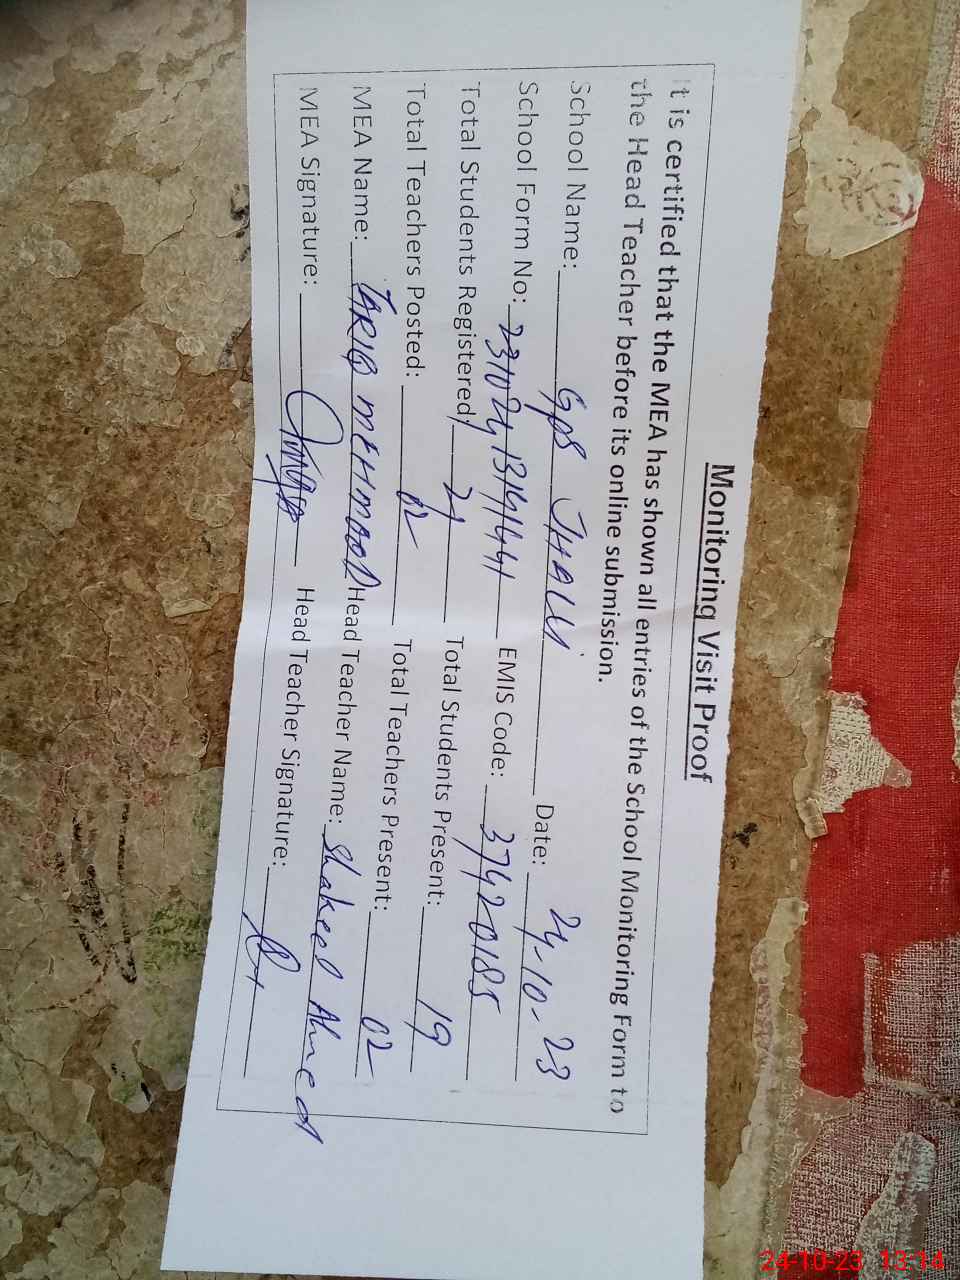 Monitoring Visit Proof
It is certified that the MEA has shown all entries of the School Monitoring Form to
the Head Teacher before its online submission.
School Name: GPS JHALLI Date: 24-10-23
School Form No: EMIS Code: 37420185
Total Students Registered: 21 Total Students Present: 19
Total Teachers Posted: 02 Total Teachers Present: 02
MEA Name: TARIQ MEHMOOD Head Teacher Name: Shakeel Ahmed
MEA Signature: Head Teacher Signature:
24-10-23 13:14